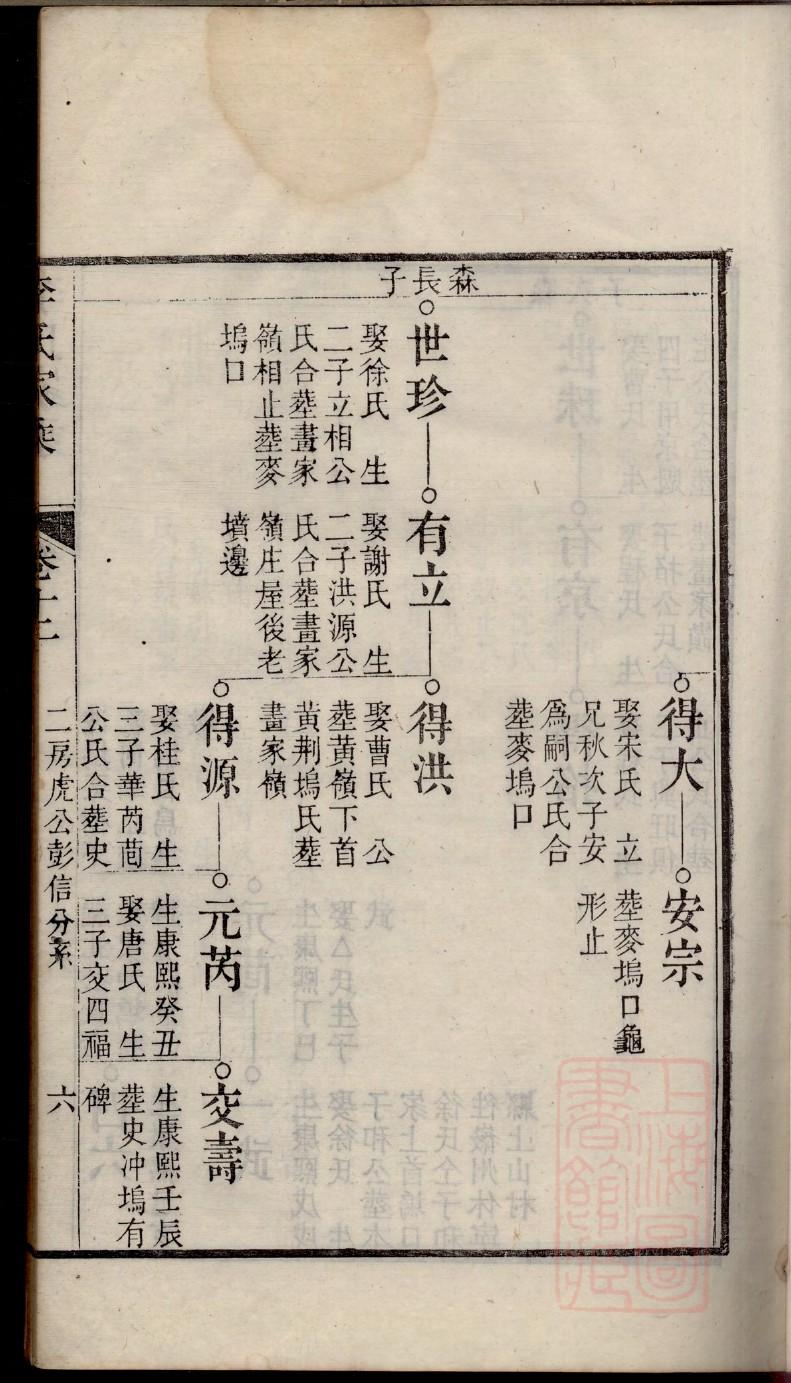 森長子
得大
娶宋氏 立
兄秋次子安
爲嗣公氏合
塟麥塢口
安宗
塟麥塢口龜
形止
世珍
娶徐氏 生
二子立相公
氏合塟畫家
嶺相止塟麥
塢口
有立
娶謝氏 生
二子洪源公
氏合塟畫家
嶺庄屋後老
墳邊
得洪
娶曹氏 公
塟黃嶺下首
黃荆塢氏塟
畫家嶺
得源
娶桂氏 生
三子華芮茼
公氏合塟史
元芮
生康熙癸丑
娶唐氏 生
三子交四福
交壽
生康熙壬辰
塟史冲塢有
碑
二房虎公彭信分系
六
李氏家乘
卷十二
上海圖書館藏